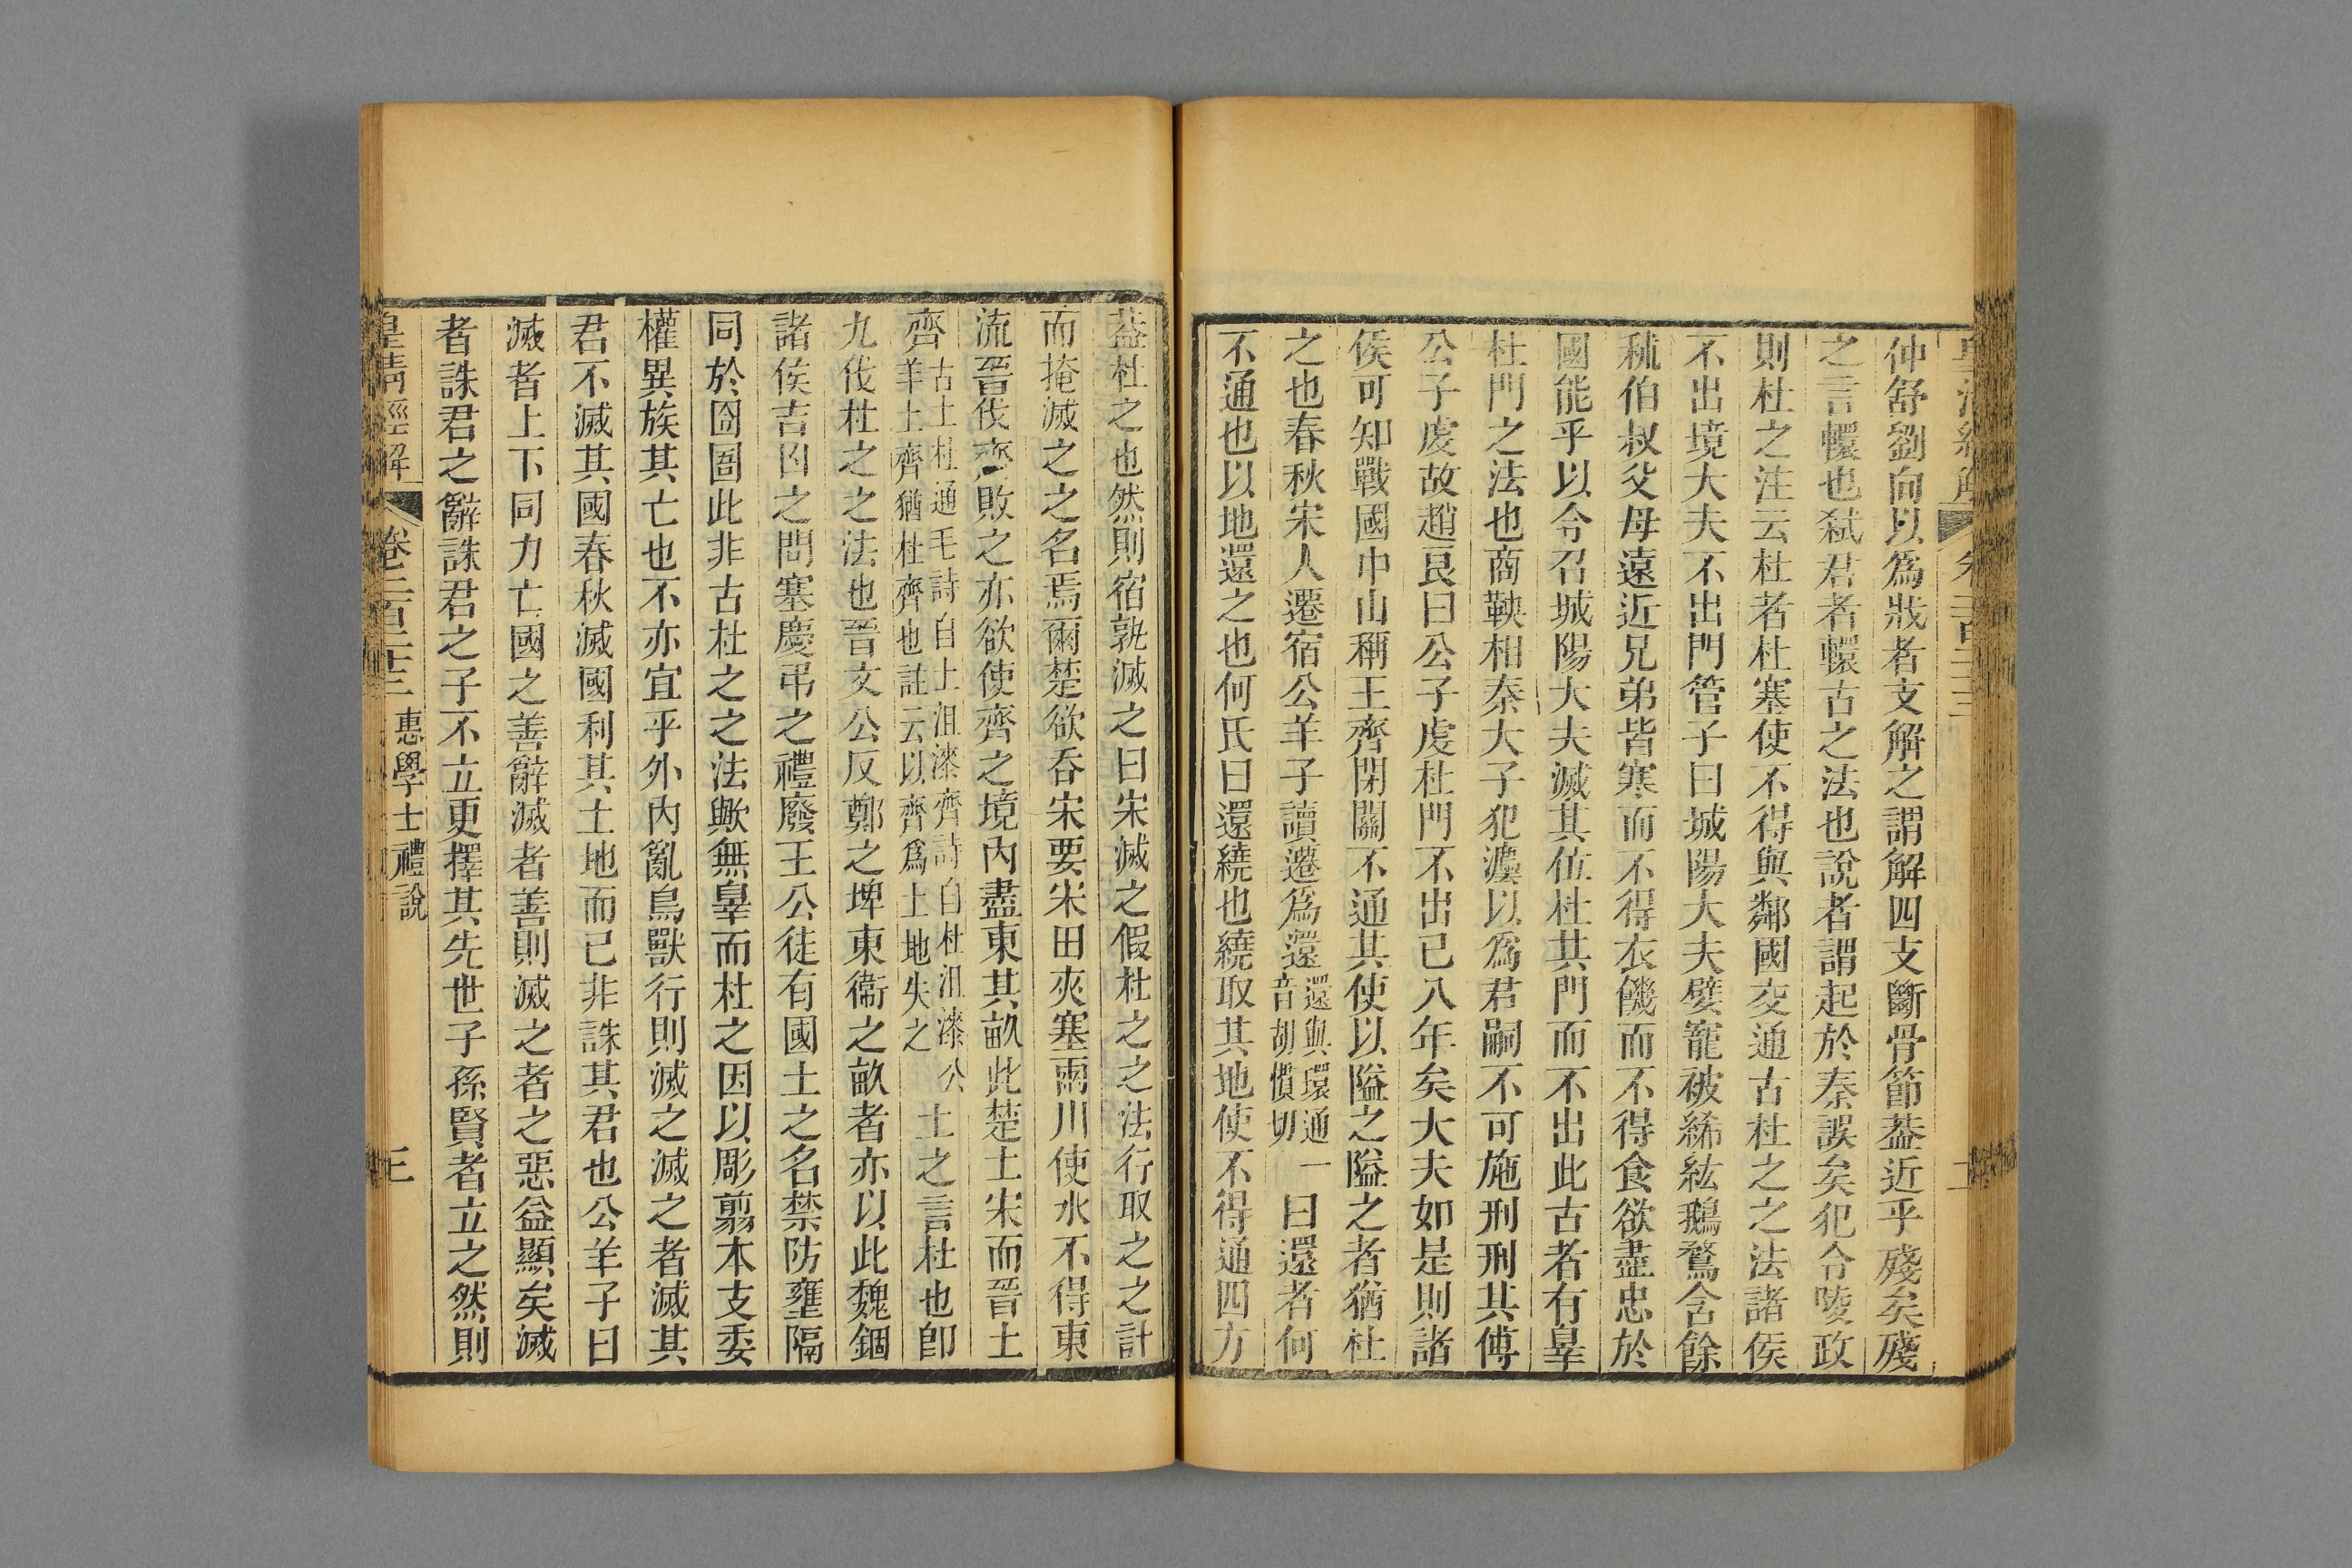 仲舒劉向以爲戕者支解之謂解四支斷骨節葢近乎殘矣殘
之言轘也弑君者轘古之法也說者謂起於秦誤矣犯令陵政
則杜之注云杜者杜塞使不得與鄰國交通古杜之之法諸侯
不出境大夫不出門管子曰城陽大夫嬖寵被絺紘鵝鶩含餘
秫伯叔父母遠近兄弟皆寒而不得衣饑而不得食欲盡忠於
國能乎以令召城陽大夫滅其位杜其門而不出此古者有辠
杜門之法也商鞅相秦大子犯灋以爲君嗣不可施刑刑其傅
公子虔故趙良曰公子虔杜門不出已八年矣大夫如是則諸
侯可知戰國中山稱王齊閉關不通其使以隘之隘之者猶杜
之也春秋宋人遷宿公羊子讀遷爲還還與環通音胡慣切一曰還者何
不通也以地還之也何氏曰還繞也繞取其地使不得通四方
葢杜之也然則宿孰滅之曰宋滅之假杜之之法行取之之計
而掩滅之之名焉爾楚欲吞宋要宋田夾塞兩川使水不得東
流晉伐齊敗之亦欲使齊之境內盡東其畝此楚土宋而晉土
齊古土杜通毛詩自土沮漆齊詩自杜沮漆公羊土齊猶杜齊也註云以齊爲土地失之土之言杜也卽
九伐杜之之法也晉文公反鄭之埤東衞之畝者亦以此魏錮
諸侯吉凶之問塞慶弔之禮廢王公徒有國土之名禁防壅隔
同於囹圄此非古杜之之法歟無辠而杜之因以彫翦本支委
權異族其亡也不亦宜乎外內亂鳥獸行則滅之滅之者滅其
君不滅其國春秋滅國利其土地而已非誅其君也公羊子曰
滅者上下同力亡國之善辭滅者善則滅之者之惡益顯矣滅
者誅君之辭誅君之子不立更擇其先世子孫賢者立之然則
皇清經解 卷二百二十三 惠學士禮說 三